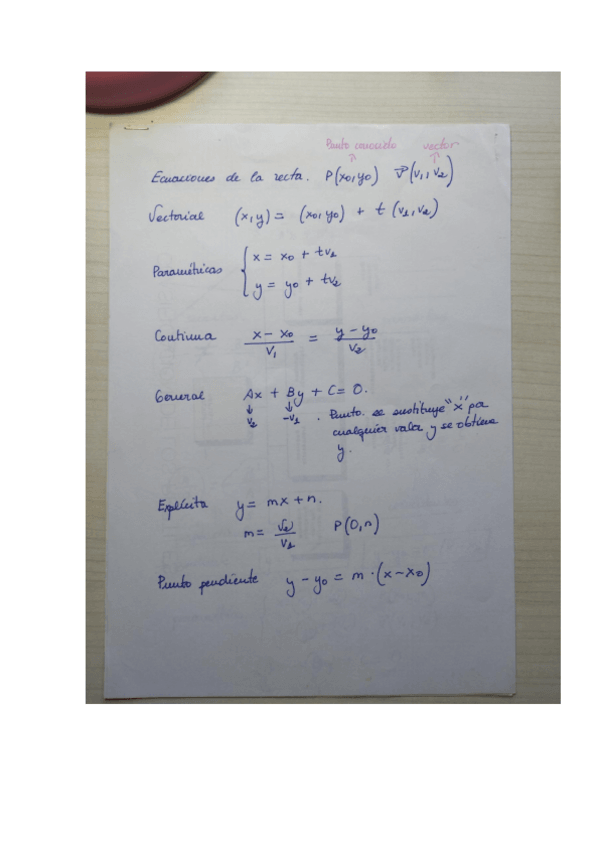 Punto conocido vector
Ecuaciones de la recta. P(x0,y0) v⃗(v1, v2)
Vectorial (x,y) = (x0,y0) + t (v1,v2)
Paramétricas { x = x0 + tv1
y = y0 + tv2
Continua x - x0 / v1 = y - y0 / v2
General Ax + By + C = 0.
↓ ↓
v2 -v1 . Punto. se sustituye "x" por
cualquier valor y se obtiene
y.
Explícita y = mx + n.
m = v2 / v1 P(0,n)
Punto pendiente y - y0 = m · (x - x0)